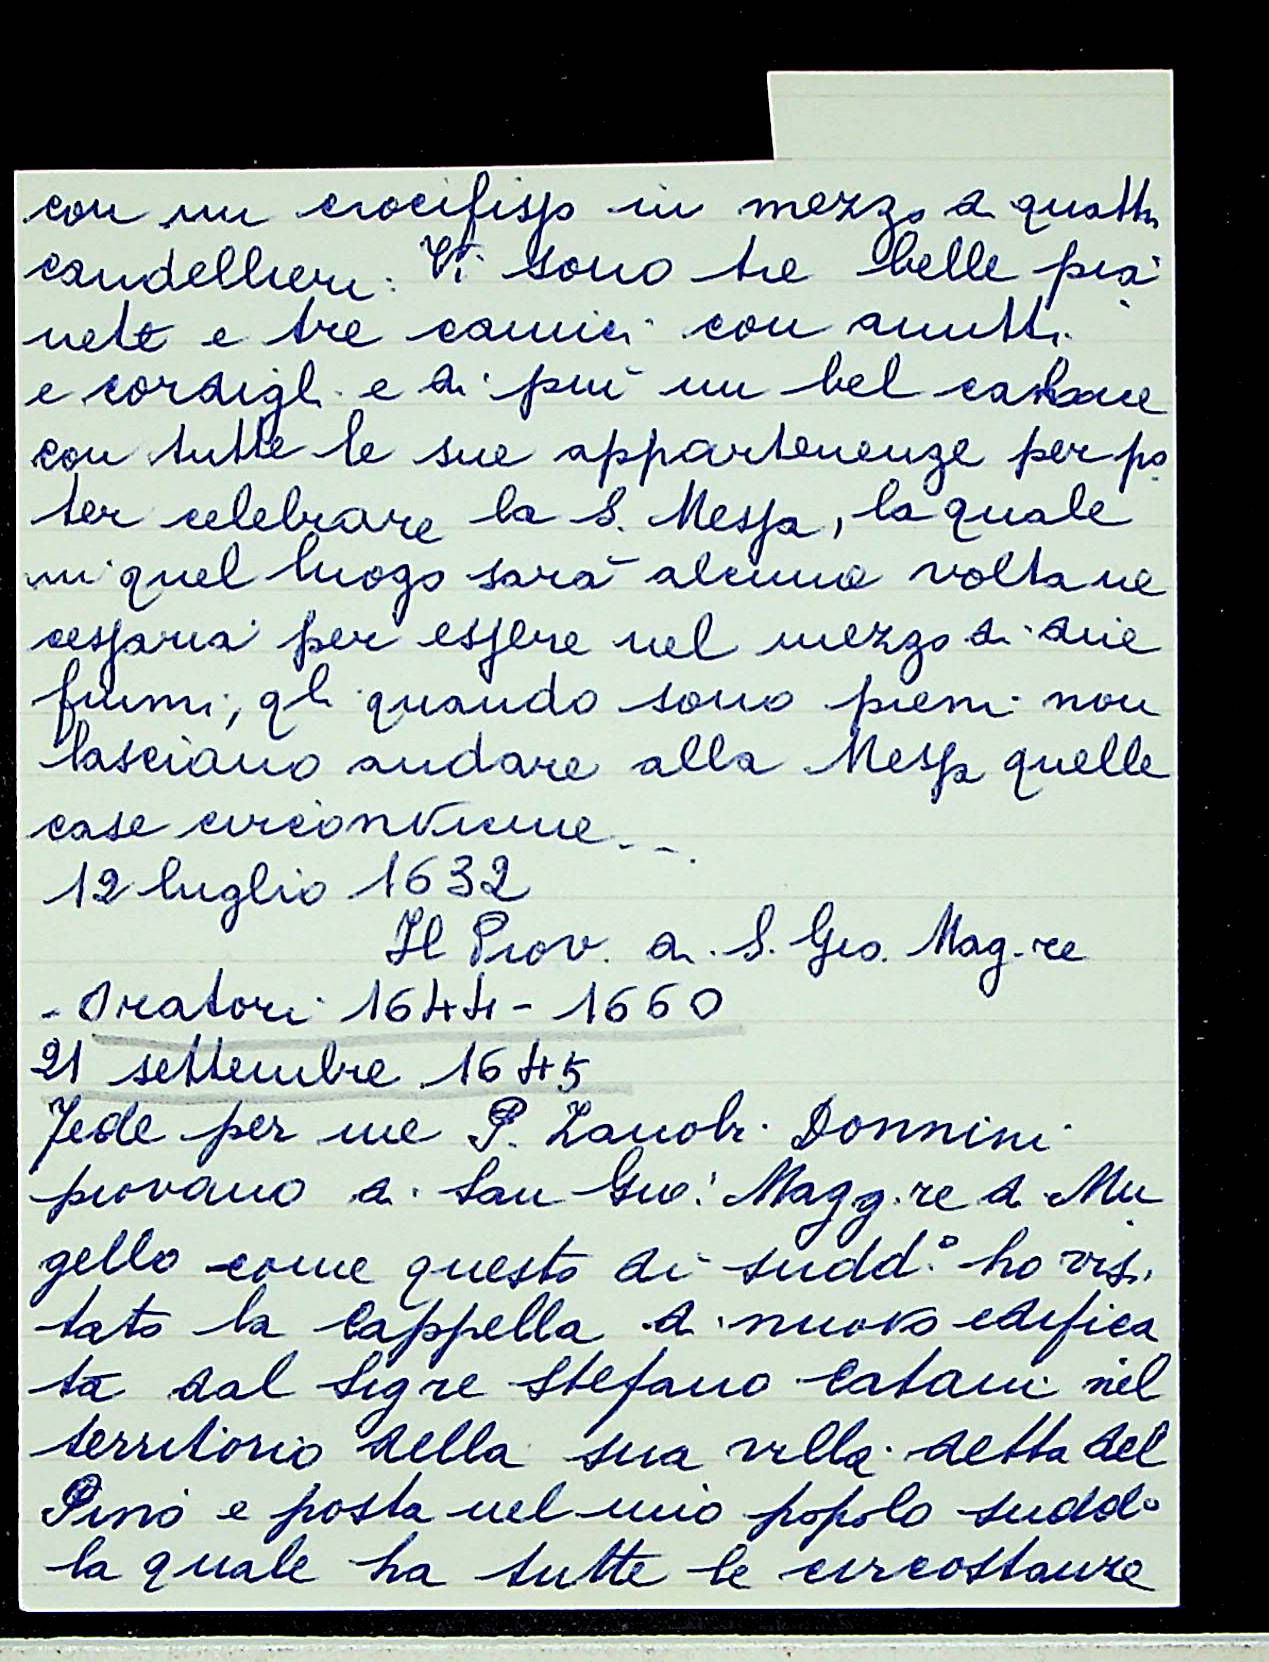 con un crocifisso in mezzo a quattr
candellieri. Vi sono tre belle pia
nete e tre camici con amitti
e cordigli e di più un bel
con tutte le sue appartenenze per po
ter celebrare la S. Messa, la quale
in quel luogo sarà alcuna volta ne
cessaria per essere nel mezzo di due
fiumi, qli quando sono pieni non
lasciano andare alla Messa quelle
case circonvicine...
12 luglio 1632
Il Piov. di S. Gio. Mag.re
- Oratori 1644-1660
21 settembre 1645
Fede per me P. Zanobi Donnini
piovano di San Gio: Magg.re di Mu
gello come questo dì sudd.° ho visi
tato la Cappella di nuovo edifica
ta dal Sigre Stefano Catani nel
territorio della sua villa detta del
Pino e posta nel mio popolo sudd°
la quale ha tutte le circostanze